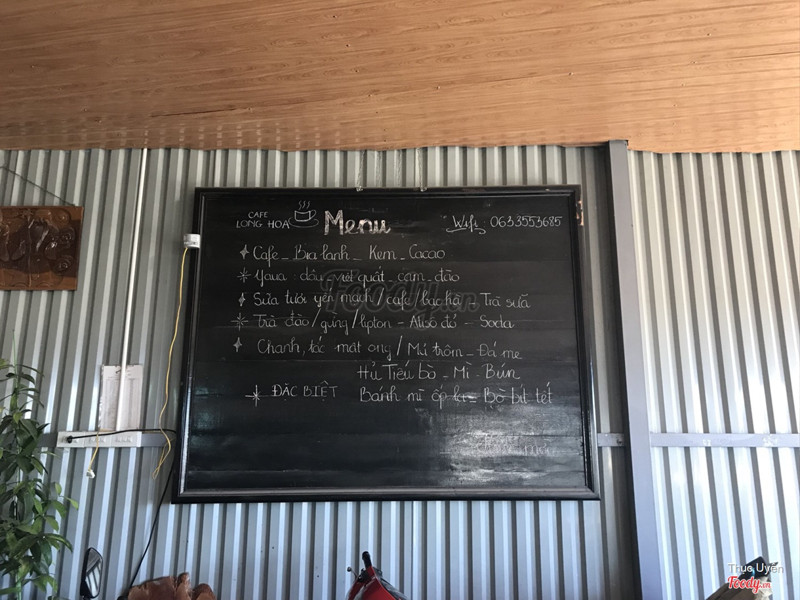 CAFE
LONG HOA
Menu
Wifi: 0633553685
Cafe _ Bia lạnh _ Kem _ Cacao
Yaua: dâu, việt quất, cam, đào
Sữa tươi yến mạch / cafe / bạc hà _ Trà sữa
Trà đào / gừng / lipton - Atiso đỏ - Soda
Chanh, tắc mật ong / Mủ trôm _ Đá me
Hủ Tiếu bò _ Mì - Bún
ĐẶC BIỆT Bánh mì ốp la _ Bò bít tết
Foody.vn
Thuc Uyen
Foody.vn